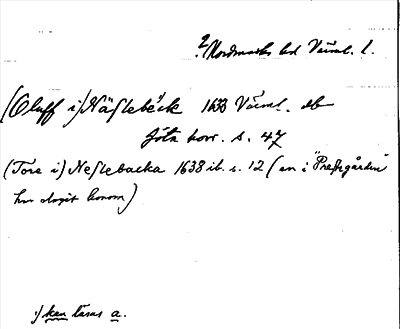 ? Nordmarks hd Värml. l.
(Oluff i) Näslebeck 1633 Värml. db
Göta hovr. s. 47
(Tore i) Neslebacka 1638 ib. s. 12 (en i "Prestgården"
har slagit honom)
1) kan läsas a.